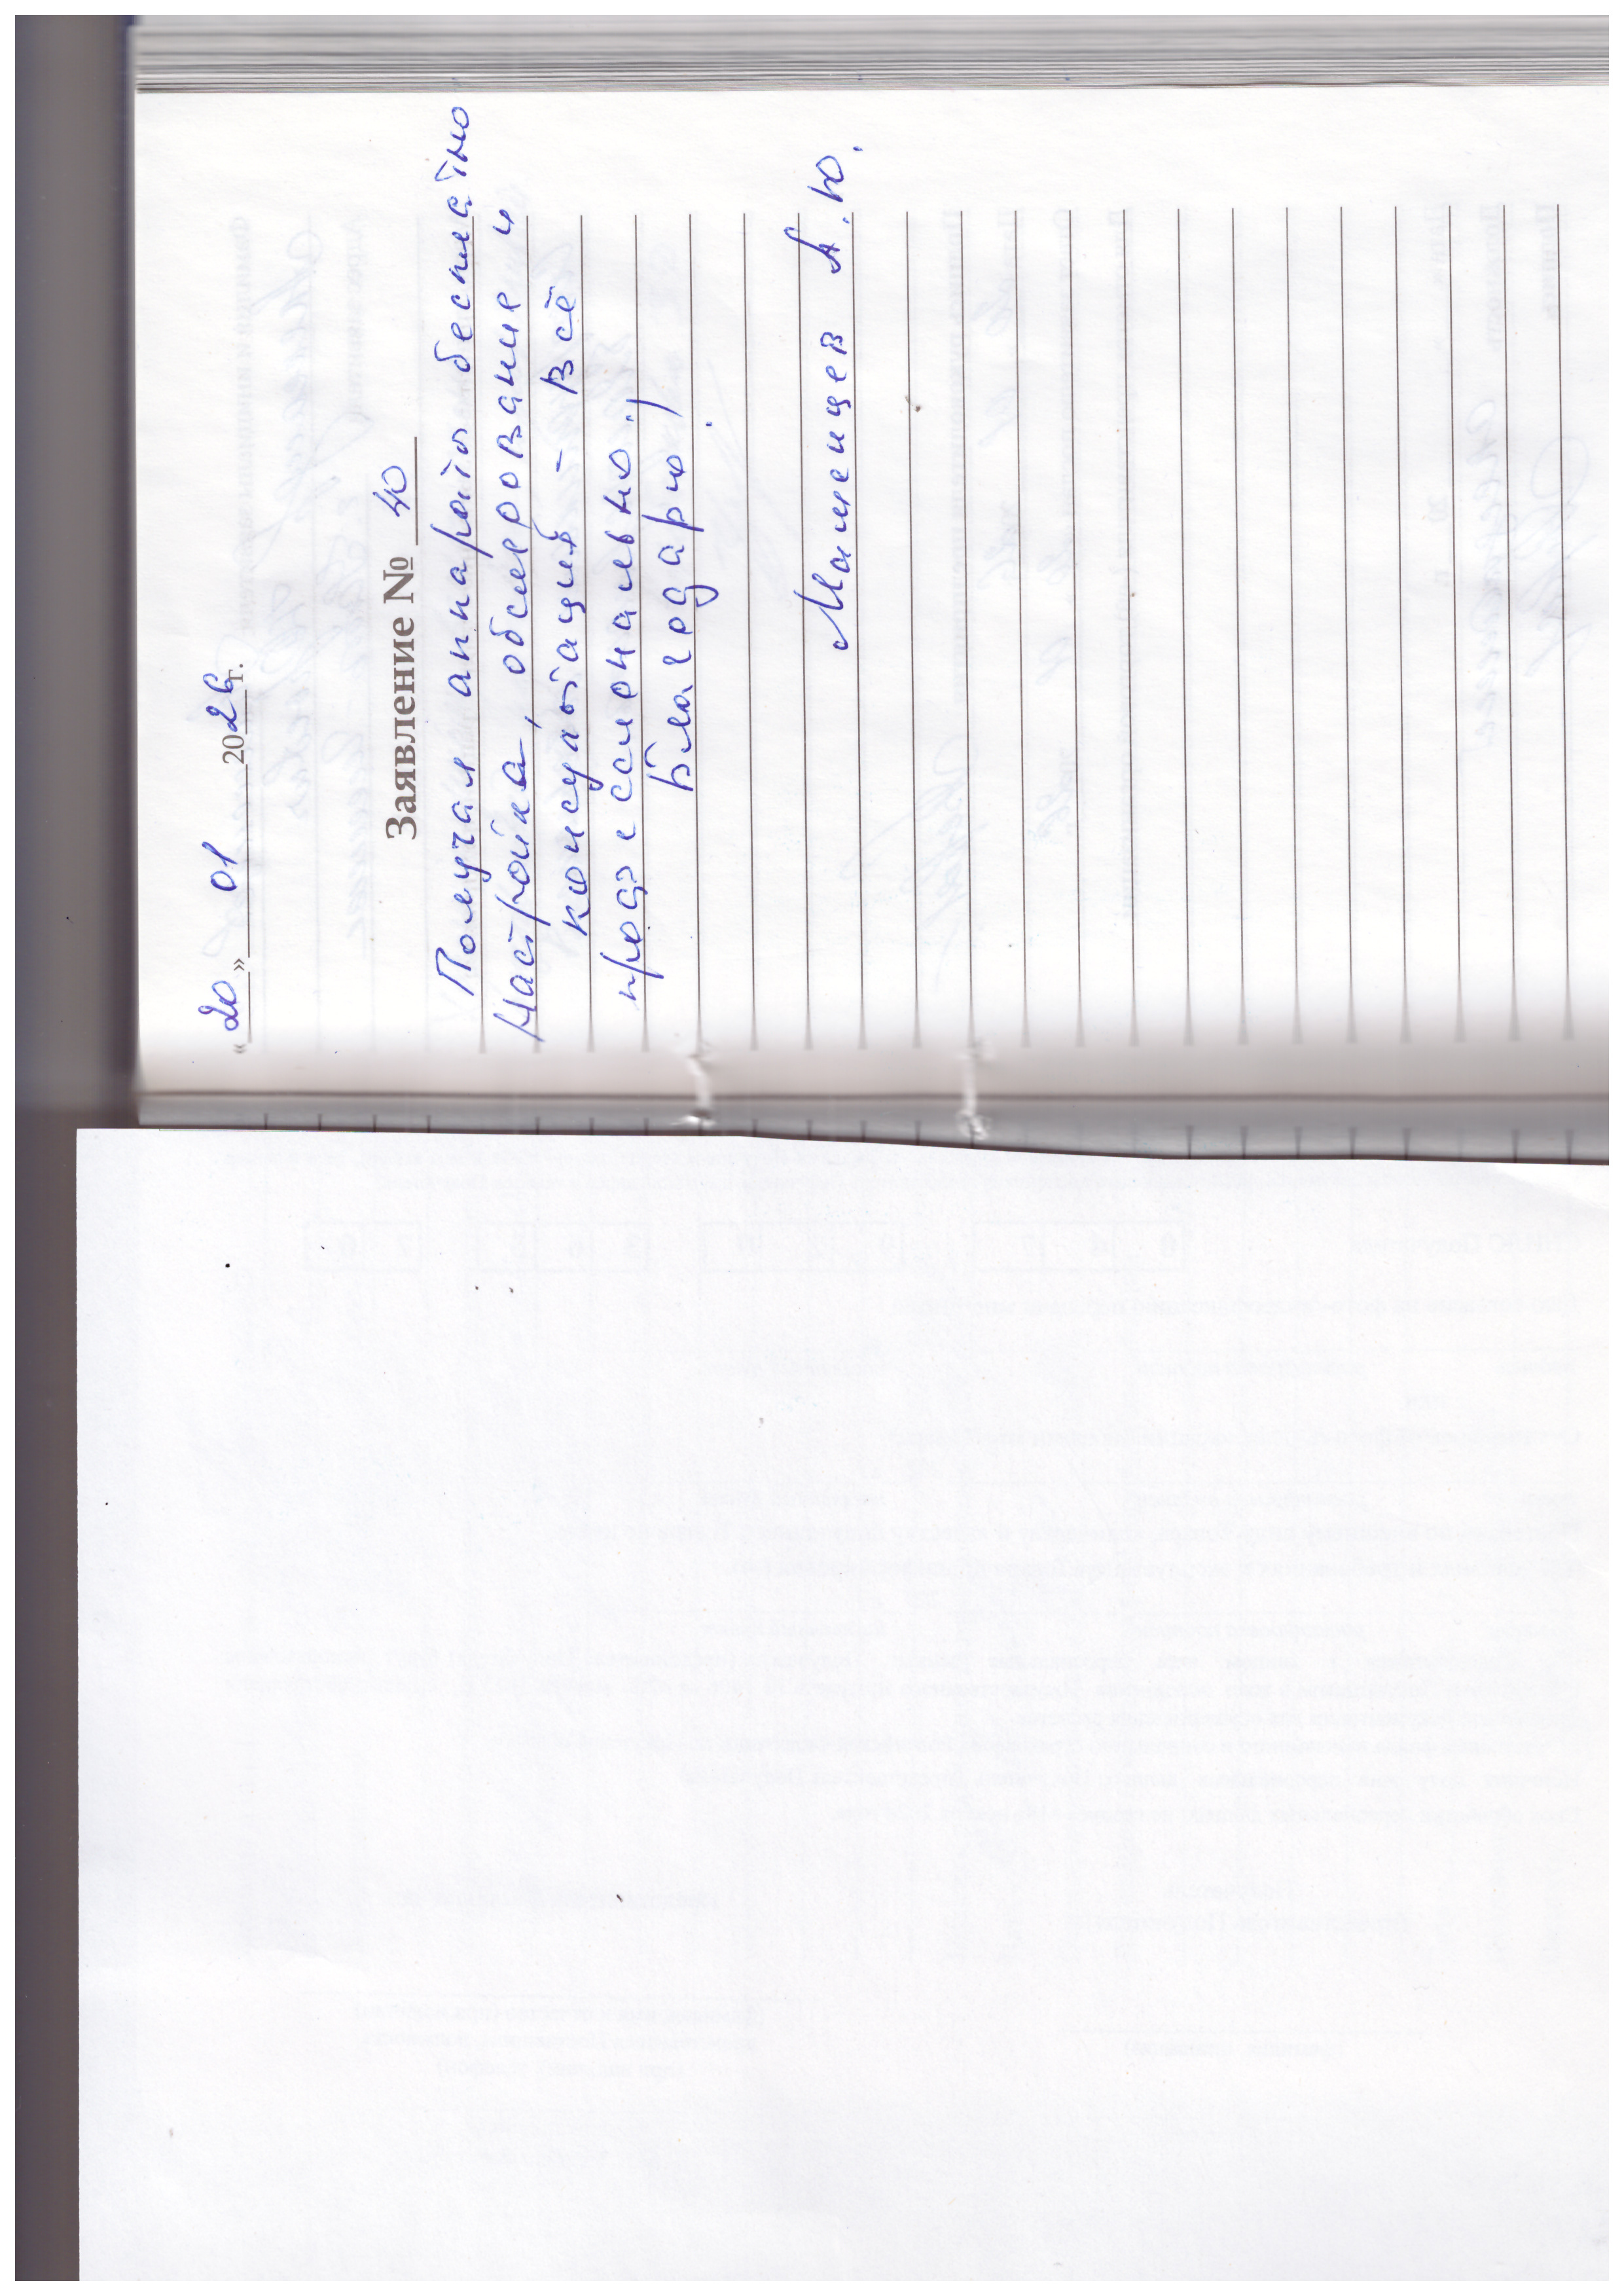 «20» 01 2026 г.
Заявление № 40
Получал аппараты бесплатно
Настройка, обслерование и
консультаций - всё
профессионально!
Благодарю!
А.Ю.